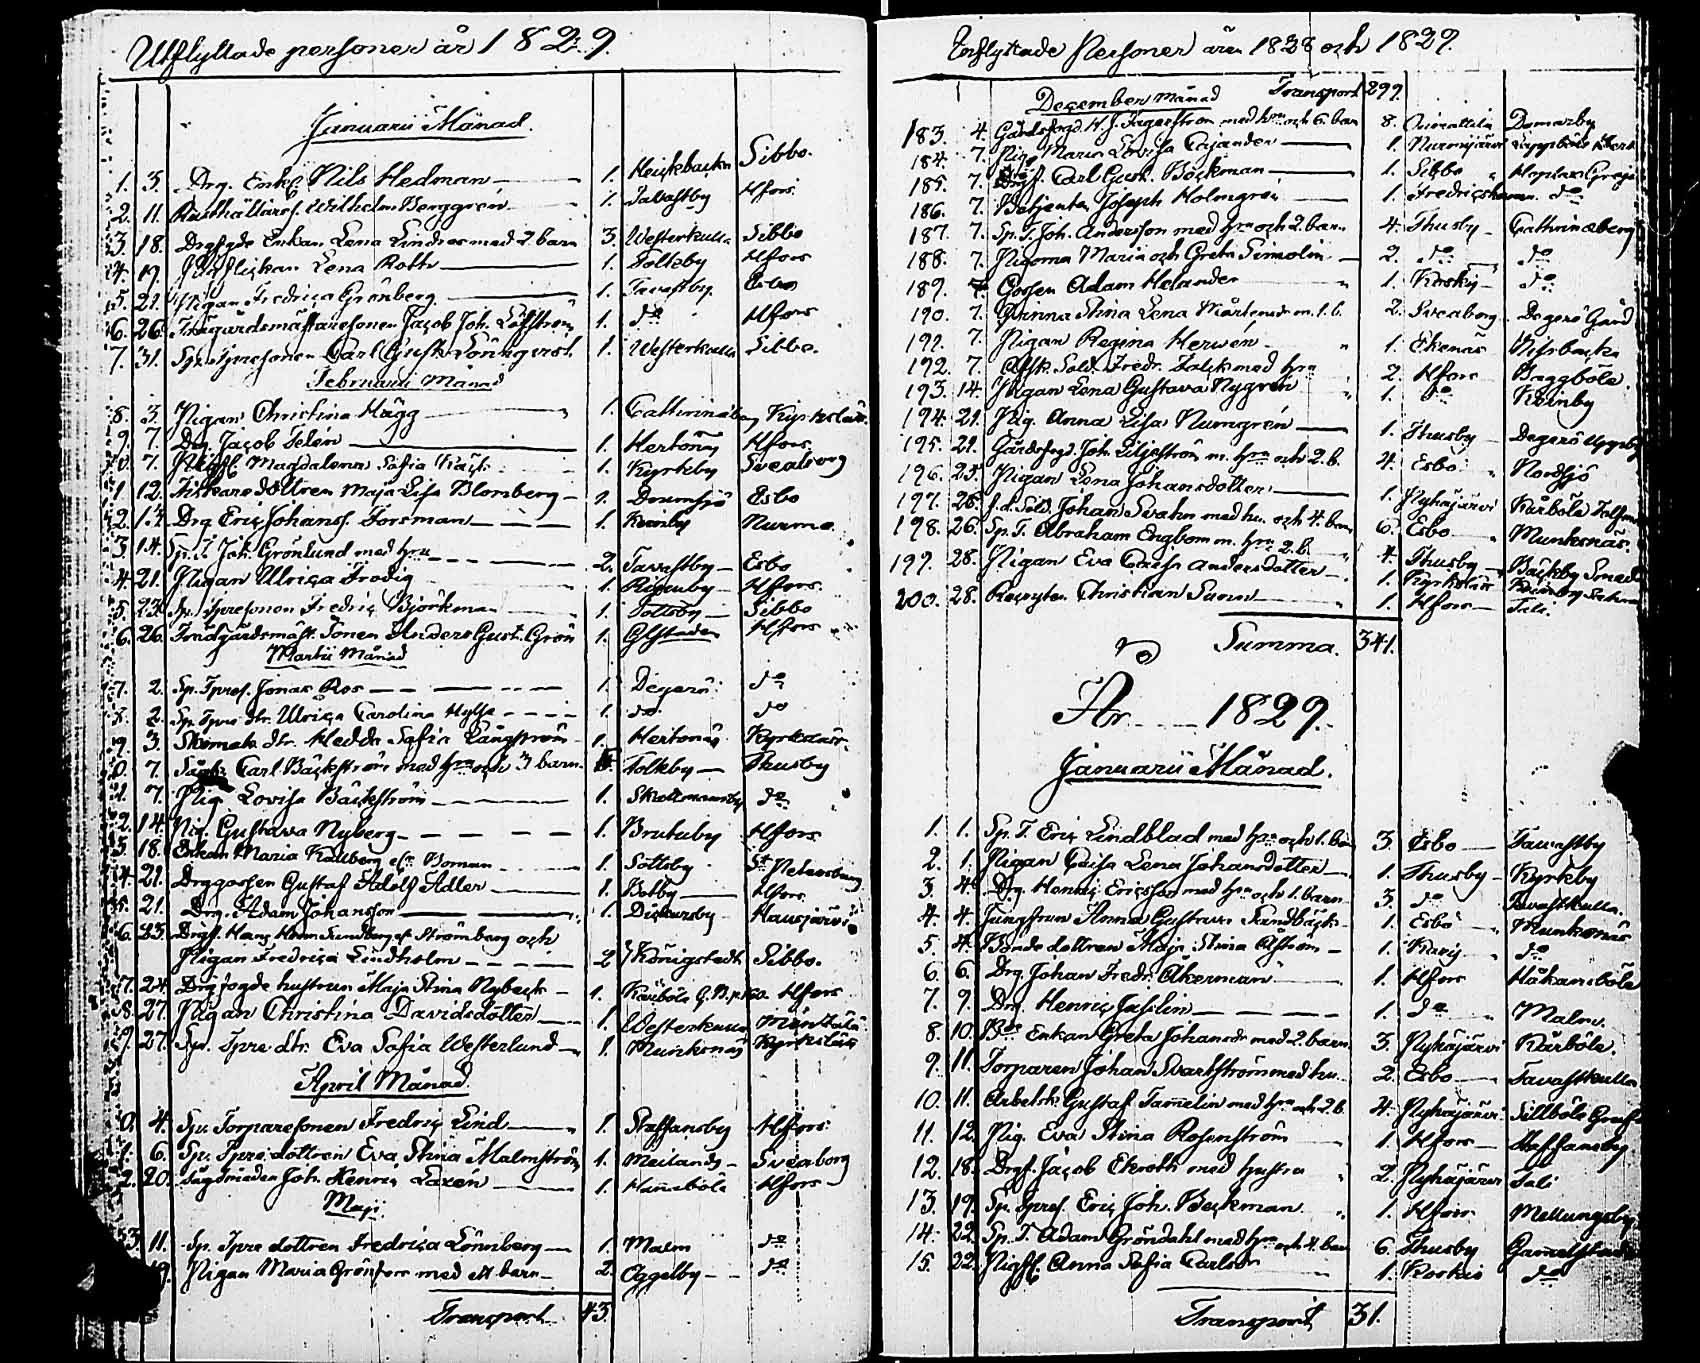 Utflyttade personer år 1829.
Januarii Månad.
1. 3. Drg. Enkl. Nils Hedman 1. Sibbo.
2. 11. Wilhelm Berggren 1. Tavastby Hfors
3. 18. Drgfgde Enkan Lena Lindros med 2 barn 3. Westerkulla Sibbo
4. 19. Flickan Lena Roth 1. Hfors
5. 21. Pigan Fredrica Grönberg 1. Tavastby Esbo
6. 26. Trägårdsmästaresonen Jacob Joh. Löfström 1. do Hfors
7. 31. Sp. Tpresonen Carl Gust. Lönnqvist 1. Westerkulla Sibbo.
Februarii Månad
8. 3. Pigan Christina Hägg 1. Cathrinaberg Kyrkslätt
9. 7. Drg Jacob Telén 1. Hertonäs Hfors
0. 7. Magdalena Safia 1. Kyrkby Sveaborg
1. 12. Fiskaredottren Maja Lisa Blomberg 1. Drumsjö Esbo
2. 14. Drg Eric Johanss. Forsman 1. Kvinby Nurmo
3. 14. Sp. T. Joh. Grönlund med hru 2. Tavastby Esbo
4. 21. Pigan Ulrica Frodig 1. Hfors
5. 23. Sp. Tpresonen Fredric Björkman 1. Sottsby Sibbo
6. 26. Trädgårdsmäst. Sonen Anders Gust. Grön 1. Hfors
Martii Månad
7. 2. Sp. Tpres. Jonas Ros 1. Degerö do
8. 2. Sp. Tpre dtr. Ulrica Carolina 1. do do
9. 3. dtr. Hedda Safia Långström 1. Hertonäs Kyrkslätt
0. 7. Carl Bäckström med hru och 3 barn 5. Tolkby Thusby
1. 7. Pig. Lovisa Bäckström 1. Skattmansby do
2. 14. Pig. Gustava Nyberg 1. Brutuby Hfors
3. 18. Enkan Maria Boman 1. Sottsby St Petersburg
4. 21. Drggossen Gustaf Adolf Adler 1. Botby Hfors
5. 21. Drg. Adam Johansson 1. Dickursby Hausjärvi
6. 23. Drgs. Strömberg och
Pigan Fredrica Lindholm 2 Königstedt Sibbo.
7. 24. Drgfogde hustrun Maja Stina Nybeck 1. Hfors
8. 27. Pigan Christina Davidsdotter 1. Westerkulla Mäntsälä
9. 27. Sp. Tpre dtr. Eva Safia Westerlund 1. Munksnäs Kyrkslätt
April Månad
0. 4. Sp. Torparesonen Fredric Lind 1. Staffansby Hfors
1. 6. Sp. Tpre dottren Eva Stina Malmström 1. Meilands Sveaborg
2. 20. Joh. Henric Laxén 1. Hfors
Maji
3. 11. Sp. Tpre dottren Fredrica Lönnberg 1. Malm do
19. Pigan Maria Grönfors med et barn 2. Oggelby do
Transport 43.
Inflyttade Personer åren 1828 och 1829.
December Månad Transport 299.
183. 4. Gårdsfogd. H. J. Fagerström med hru och 6 barn 8. Domarby
184. 7. Pig. Maria Lovisa Cajander 1. Nurmijärvi
185. 7. Carl Gust. Böckman 1. Sibbo
186. 7. Betjenten Joseph Holmgren 1. Fredricshamn do
187. 7. Sp. T. Joh. Andersson med hru och 2 barn 4. Thusby Cathrinaberg
188. 7. Pigorna Maria och Greta Simolin 2. do do
189. 7. Gossen Adam Helander 1. do
190. 7. Stina Lena m. 1. b. 2. Sveaborg Degerö Gård
191. 7. Pigan Regina Herwén 1. Ekenäs Nissbacka
192. 7. Afsk. Sold. Fredr. Falck med hru 2. Hfors Baggböle
193. 14. Pigan Lena Gustava Nygren 1. do Kvinby
194. 21. Pig. Anna Lisa Numgrén 1. Thusby Degerö
195. 21. Gårdsfogd. Joh. Liljeström m. hru och 2. b. 4. Esbo Nordsjö
196. 25. Pigan Lena Johansdotter 1. Nykäjärvi Kårböle
197. 26. f. d. Sold. Johan Svahn med hu. och 4. barn 6. Esbo Munksnäs.
198. 26. Sp. T. Abraham Engbom m. hru 2. b. 4. Thusby Bäckby
199. 28. Pigan Eva Caisa Andersdotter 1. Kyrkslätt
200. 28. Christian 1. Hfors Tali
Summa. 341.
År 1829.
Januarii Månad.
1. 1. Sp. T. Eric Lindblad med hru och 1. barn 3. Esbo Tavastby
2. 1. Pigan Caisa Lena Johansdotter 1. Thusby Kyrkby
3. 4. Drg. Henric Ericsson med hru och 1. barn 3. do Tavastkulla
4. 4. Jungfrun Anna Gustava Sandbäck 1. Esbo Munksnäs
5. 4. Bonde dottren Maja Stina Åström 1. Karis do
6. 6. Drg Johan Fredr. Åkerman 1. Hfors Håkansböle
7. 9. Drg. Henric Jasslin 1. do Malm.
8. 10. Enkan Greta Johansdr med 2. barn 3. Nykäjärvi Kårböle.
9. 11. Torparen Johan Svartström med hu. 2. Esbo Tavastkulla
10. 11. Arbetsk. Gustaf Tamelin med hru och 2. b. 4. Nykäjärvi Sillböle
11. 12. Pig. Eva Stina Rosenström 1. Hfors Staffansby
12. 18. Drgs. Jacob Ekroth med hustru 2. Nykäjärvi Tali
13. 19. Sp. Tpres. Eric Joh. Beckman 1. Hfors Mellungsby
14. 22. Sp. T. Adam Gröndahl med hru och 4. barn 6. Thusby Gamelstaden
15. 22. Anna Safia Carlsdr 1. do
Transport 31.